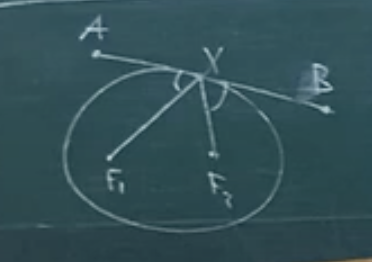 A
X
B
F₁
F₂